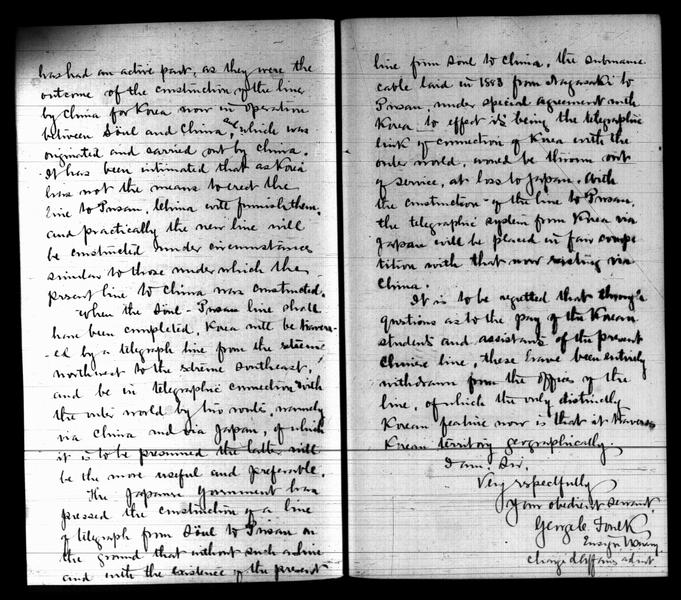 has had an active part, as they were the
outcome of the construction of the line
by China for Korea now in operation
between Söul and China, and which was
originated and carried out by China.
It has been intimated that as Korea
has not the means to erect the
line to Pusan, China will furnish them,
and practically the new line will
be constructed under circumstances
similar to those under which the
present line to China was constructed.
When the Söul-Pusan line shall
have been completed, Korea will be travers-
ed by a telegraph line from the extreme
northwest to the extreme southeast,
and be in telegraphic connection with
the outer world by two routes, namely
via China and via Japan, of which
it is to be presumed the latter will
be the more useful and preferable.
The Japanese Government has
pressed the construction of a line
of telegraph from Söul to Pusan on
the ground that without such a line
and with the existence of the present
line from Söul to China, the submarine
cable laid in 1883 from Nagasaki to
Pusan, under special agreement with
Korea to effect its being the telegraphic
link of connection of Korea with the
outer world, would be thrown out
of service, at loss to Japan. With
the construction of the line to Pusan,
the telegraphic system from Korea via
Japan will be placed in fair compe-
tition with that now existing via
China.
It is to be regretted that through
questions as to the pay of the Korean
students and assistants of the present
Chinese line, these have been entirely
withdrawn from the offices of the
line, of which the only distinctly
Korean feature now is that it traverses
Korean territory geographically.
I am, Sir,
Very respectfully
Your obedient servant,
George C. Foulk
Ensign U.S. Navy,
Chargé d'Affaires ad int.